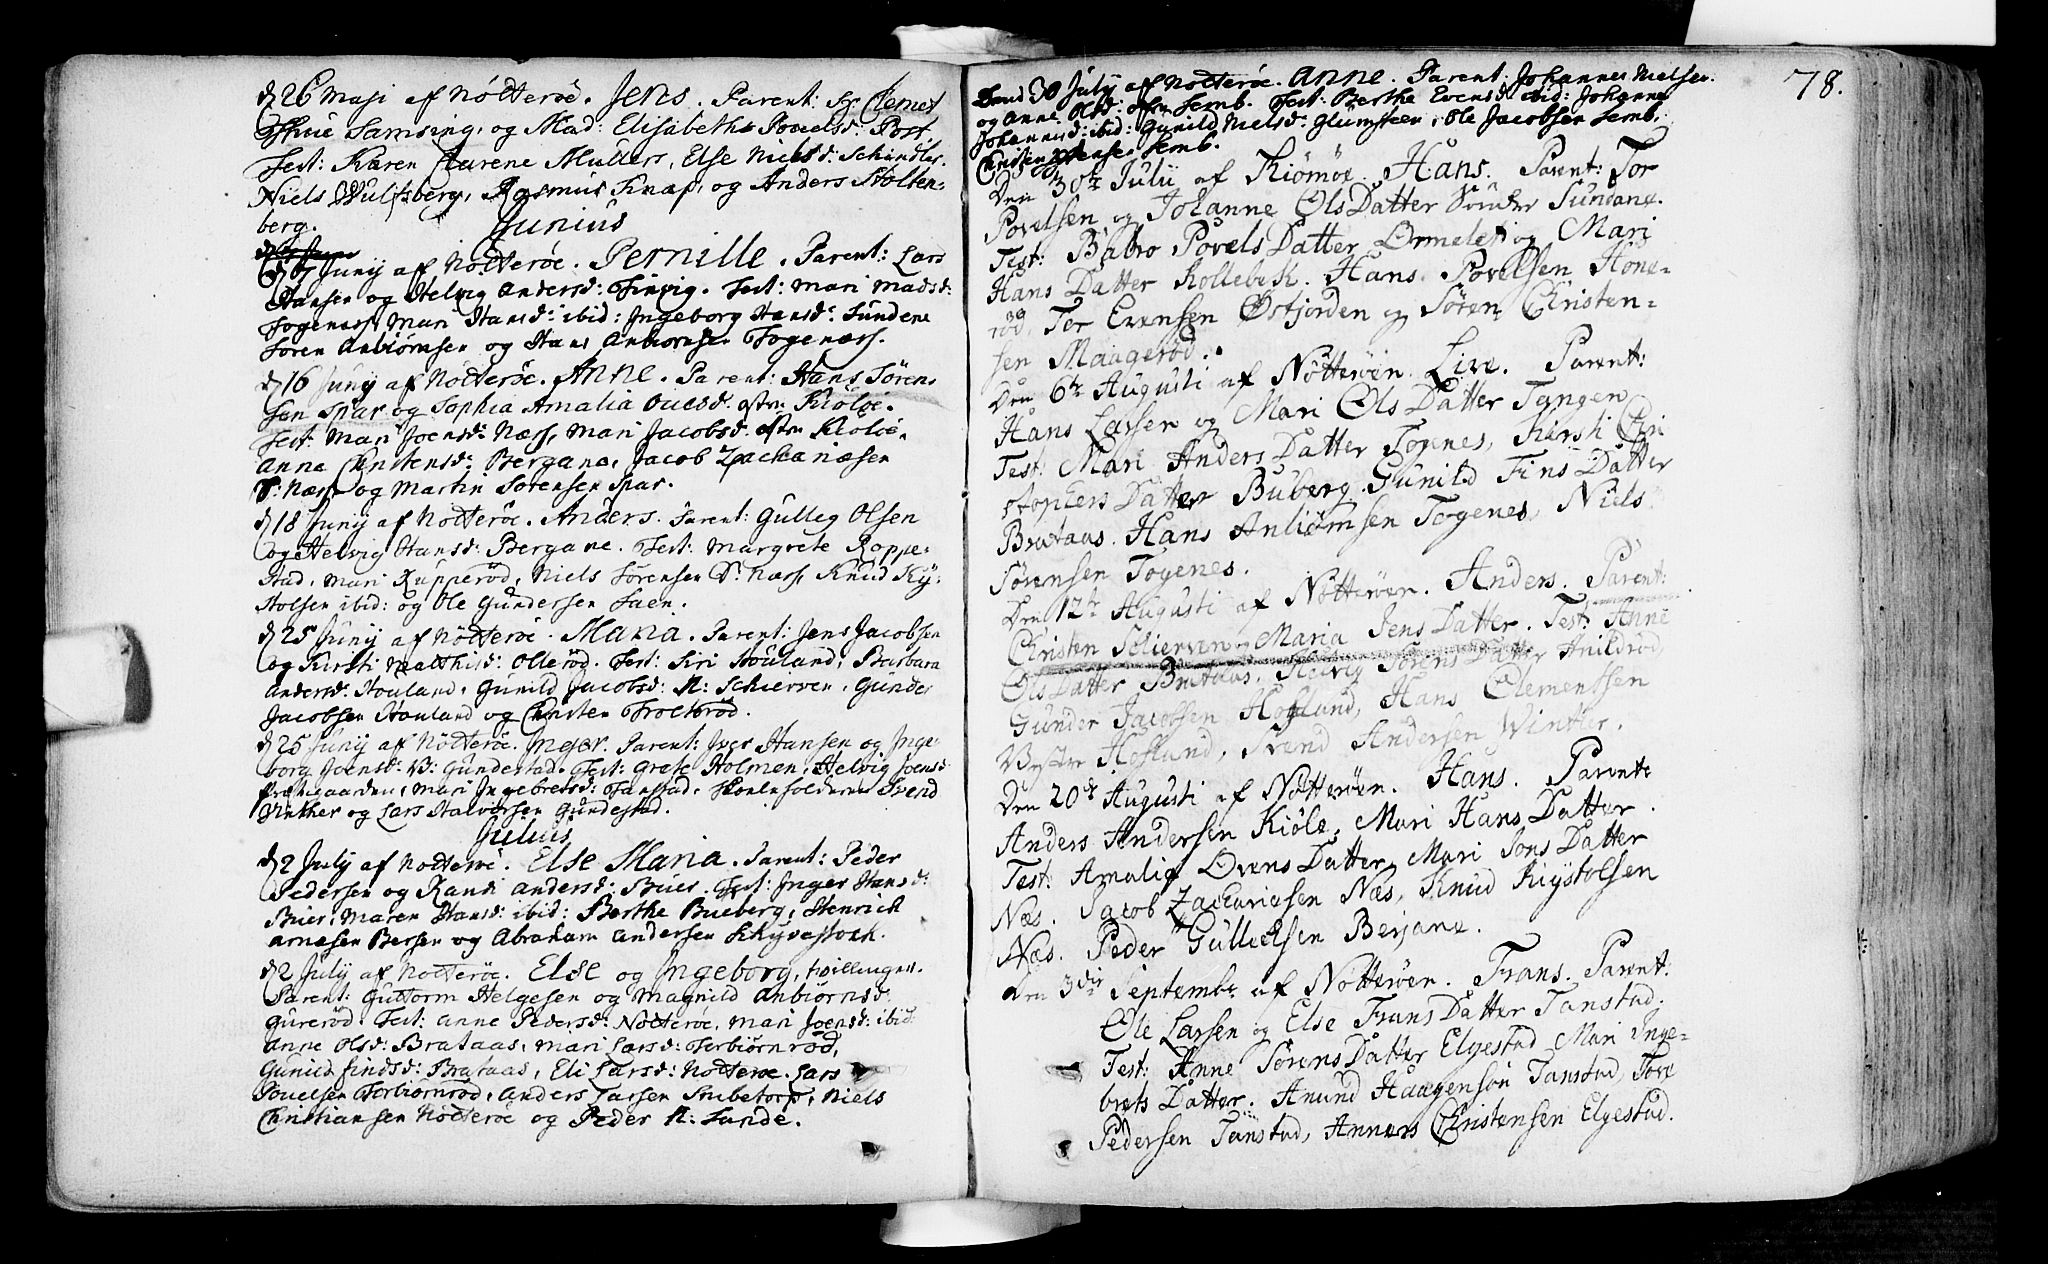 d 26 Maji af Nötteröe. Jens. Parent: Sr. Clemet
Thue Samsing, og Mad: Elisabeth Povelsd: Post
Test: Karen Mullers, Else Nielsd: Schindler
Niels Wulfsberg, Rasmus Knap, og Anders Stolten-
berg.
Junius
d 7 Junij af Nötteröe. Pernille. Parent: Lars
Hansen og Helvig Andersd: Finvig. Test: Mari Madsd:
Togenæss, Mari Hansd: ibid: Ingeborg Hansd: Sundene
Soren Anbiörnsen og Hans Anbiornsen Togenæss.
d 16 Junij af Nötteröe. Anne. Parent: Hans Sören-
sen Spar og Sophia Amalia Ouesd. östre Kiöloe.
Test: Mari Joensd: Næss, Mari Jacobsd. östre Kiöloe.
Anna Christensd: Bergane, Jacob Zachariæsen
V: Næss og Martin Sorensen Spar.
d 18 Junij af Nötteröe. Anders. Parent: Gulleg Olsen
og Helvig Hansd: Bergane. Test: Margrete Roppe-
stad, Mari Rupperöd, Niels Sörensen V: Næss, Knud Ky-
stolsen ibid: og Ole Gundersen Saen.
d 25 Junij af Nötteröe. Maria. Parent: Jens Jacobsen
og Kirsti Matthisd: Olleröd. Test: Siri Houland, Barbara
Andersd: Houland, Gunild Jacobsd: N: Schierven, Gunder
Jacobsen Houland og Christen Trolleröd.
d 25 Junij af Nötteröe. Inger. Parent: Iver Hansen og Inge-
borg Joensd: V: Gundestad. Test: Grete Holmen, Helvig Joensd
Præstegaarden, Mari Ingebretsd: Tanstad, Skoleholderen Svend
Vinther og Lars Halvorsen Gundestad.
Julius
d 2 July af Nötteröe. Else Maria. Parent: Peder
Pedersen og Randi Andersd: Buer. Test: Inger Hansd:
Buer, Maren Hansd: ibid: Berthe Bueberg, Henrich
Arnesen Bersen og Abraham Andersen Skhyvestoch.
d 2 July af Nötteröe. Else og Ingeborg, tvillinger.
Parent: Guttorm Helgesen og Magnild Anbiörnsd:
Gureröd. Test: Anne Pedersd: Nötteröe, Mari Joensd: ibid:
Anne Olsd: Brataas, Mari Larsd: Torbiörnröd,
Gunild Findsd: Brataas, Eli Larsd: Nötteröe. Lars
Povelsen Torbiörnröd, Anders Larsen Snibetorp, Niels
Christiansen Nötteröe og Peder N: Sande.
78.
Dend 30 July af Nötteröe. Anne. Parent: Johannes Nielsen
og Anne Olsd: Semb. Test: Berthe Evensd: ibid: Johanne
Johannsd: ibid: Gunild Nielsd: Glumsteen, Ole Jacobsen Semb,
Christen Jensen Semb.
Den 30te Julii af Kiömöe. Hans. Parent: Tor
Povelsen og Johanne Ols Datter Sönder Sundane.
Test: Babro Povels Datter Ormelet og Mari
Hans Datter Kollebek. Hans Povelsen Hone-
röd, Tor Evensen Østjorden og Sören Christen-
sen Maageröd.
Den 6te Augusti af Nötteröen Live. Parent:
Hans Larsen og Mari Ols Datter Tangen
Test: Mari Anders Datter Togenes, Kirsti Chri
stophers Datter Buberg Gunild Fins Datter
Brataas. Hans Anbiörnsen Togenes, Niels
Sörensen Togenes.
Den 12te Augusti af Nötteröen. Anders. Parent:
Christen Schierven, Maria Jens Datter. Test: Anne
Ols Datter Brataas, Helvig Sörens Datter Hnildröd,
Gunder Jacobsen Hoflund, Hans Clementsen
Vestre Hoflund, Svend Andersen Winter.
Den 20de Augusti af Nötteröen. Hans. Parent:
Anders Andersen Kiöle, Mari Hans Datter.
Test: Amalia Ovens Datter, Mari Jons Datter
Næs. Jacob Zachariasen Næs, Knud Kiystolsen
Næs. Peder Gullichsen Berjane.
Den 3die Septembr af Nötteröen. Frans. Parent:
Ole Larsen og Else Frans Datter Tanstad.
Test: Anne Sörens Datter Elgestad Mari Inge-
brets Datter. Amund Haagensön Tanstad, Tore
Pedersen Tanstad, Anners Christensen Elgestad.